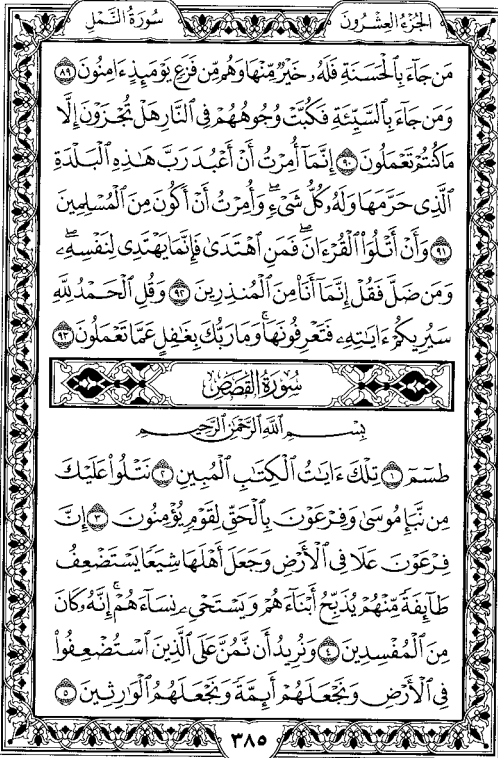 سُورَةُ النَّمْلِ
الجُزْءُ العِشْرُونَ
مَن جَآءَ بِٱلْحَسَنَةِ فَلَهُۥ خَيْرٌ مِّنْهَا وَهُم مِّن فَزَعٍ يَوْمَئِذٍ ءَامِنُونَ ٨٩
وَمَن جَآءَ بِٱلسَّيِّئَةِ فَكُبَّتْ وُجُوهُهُمْ فِى ٱلنَّارِ هَلْ تُجْزَوْنَ إِلَّا
مَا كُنتُمْ تَعْمَلُونَ ٩٠ إِنَّمَآ أُمِرْتُ أَنْ أَعْبُدَ رَبَّ هَـٰذِهِ ٱلْبَلْدَةِ
ٱلَّذِى حَرَّمَهَا وَلَهُۥ كُلُّ شَىْءٍ ۖ وَأُمِرْتُ أَنْ أَكُونَ مِنَ ٱلْمُسْلِمِينَ
٩١ وَأَنْ أَتْلُوَا۟ ٱلْقُرْءَانَ ۖ فَمَنِ ٱهْتَدَىٰ فَإِنَّمَا يَهْتَدِى لِنَفْسِهِۦ ۖ
وَمَن ضَلَّ فَقُلْ إِنَّمَآ أَنَا۠ مِنَ ٱلْمُنذِرِينَ ٩٢ وَقُلِ ٱلْحَمْدُ لِلَّهِ
سَيُرِيكُمْ ءَايَـٰتِهِۦ فَتَعْرِفُونَهَا ۚ وَمَا رَبُّكَ بِغَـٰفِلٍ عَمَّا تَعْمَلُونَ ٩٣
سُورَةُ القَصَصِ
بِسْمِ ٱللَّهِ ٱلرَّحْمَـٰنِ ٱلرَّحِيمِ
طسٓمٓ ١ تِلْكَ ءَايَـٰتُ ٱلْكِتَـٰبِ ٱلْمُبِينِ ٢ نَتْلُوا۟ عَلَيْكَ
مِن نَّبَإِ مُوسَىٰ وَفِرْعَوْنَ بِٱلْحَقِّ لِقَوْمٍ يُؤْمِنُونَ ٣ إِنَّ
فِرْعَوْنَ عَلَا فِى ٱلْأَرْضِ وَجَعَلَ أَهْلَهَا شِيَعًا يَسْتَضْعِفُ
طَآئِفَةً مِّنْهُمْ يُذَبِّحُ أَبْنَآءَهُمْ وَيَسْتَحْىِۦ نِسَآءَهُمْ ۚ إِنَّهُۥ كَانَ
مِنَ ٱلْمُفْسِدِينَ ٤ وَنُرِيدُ أَن نَّمُنَّ عَلَى ٱلَّذِينَ ٱسْتُضْعِفُوا۟
فِى ٱلْأَرْضِ وَنَجْعَلَهُمْ أَئِمَّةً وَنَجْعَلَهُمُ ٱلْوَٰرِثِينَ ٥
٣٨٥